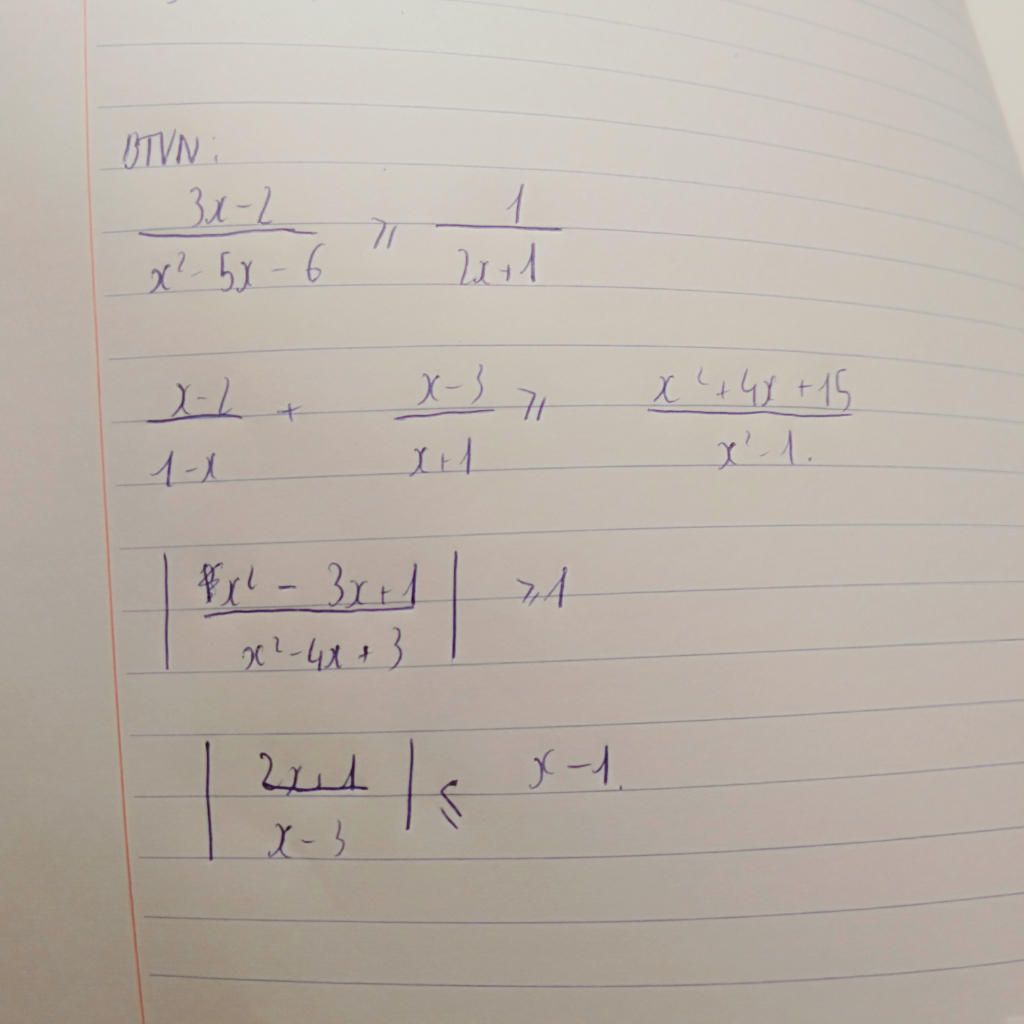 BTVN:
\frac{3x-2}{x^2-5x-6} ⩾ \frac{1}{2x+1}
\frac{x-2}{1-x} + \frac{x-3}{x+1} ⩾ \frac{x^2+4x+15}{x^2-1}.
\left|\frac{x^2-3x+1}{x^2-4x+3}\right| ⩾ 1
\left|\frac{2x+1}{x-3}\right| ⩽ x-1.